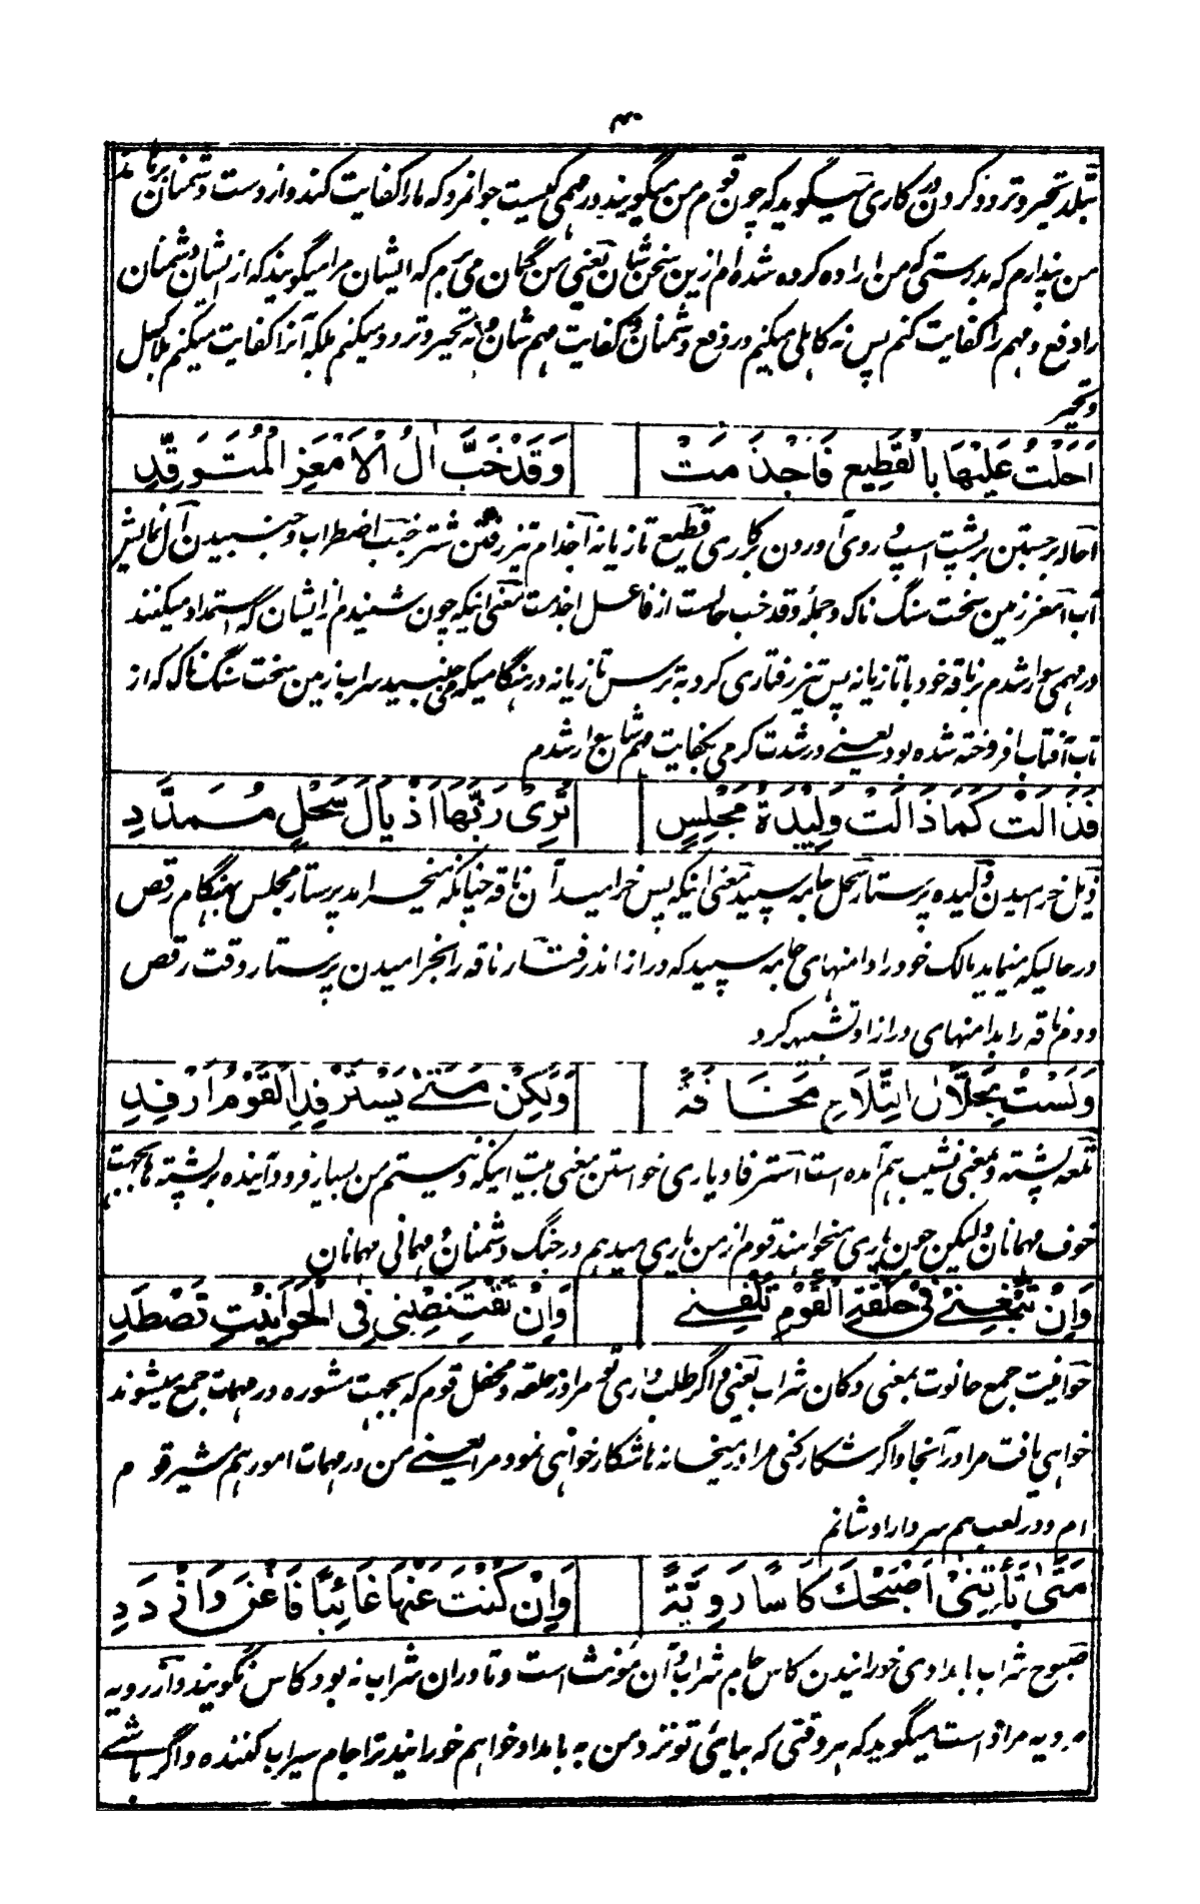 تبلد تحیر و تردد کردن در کاری میگوید که چون قوم من میگویند در مهمی کیست جوانمرد که ما را کفایت کند و از دست دشمنان برهاند
من پندارم که بدرستی که من اراده کرده شده ام ازین سخن شان یعنی من گمان می برم که ایشان مرا میگویند که از ایشان دشمنان
را دفع و مهم را کفایت کنم پس نه کاهلی میکنم در دفع دشمنان و کفایت مهم شان و نه تحیر و تردد میکنم بلکه آنرا کفایت میکنم بلا کسل
و تحیر
اَحَلْتُ عَلَیْهَا بِالْقَطِیعِ فَاَجْذَمَتْ وَقَدْ خَبَّ اٰلُ الْاَمْعَزِ الْمُتَوَقِّدِ
احاله برجستن بر پشت اسپ و روی آوردن بر کاری قطیع تازیانه اجذام تیز رفتن شتر خبب اضطراب و جنبیدن آل نمایش
آب امعز زمین سخت سنگ ناک و جمله وقد خب حالست از فاعل اجذمت معنی اینکه چون شنیدم از ایشان که استمداد میکنند
در مهمی سوار شدم بر ناقه خود با تازیانه پس تیز رفتاری کرد به ترس تازیانه در هنگامیکه می جنبید سراب زمین سخت سنگ ناک که از
تاب آفتاب افروخته شده بود یعنے در شدت گرمی بکفایت مهم شان سوار شدم
فَذَالَتْ کَمَا ذَالَتْ وَلِیْدَةُ مَجْلِسٍ تُرِیْ رَبَّهَا اَذْیَالَ سَحْلٍ مُمَدَّدِ
ذیل خرامیدن ولیده پرستار سحل جامه سپید معنی اینکه پس خرامید آن ناقه چنانکه میخرامد پرستار مجلس بهنگام رقص
در حالیکه مینماید مالک خود را دامنهای جامه سپید که دراز اند رفتار ناقه را بخرامیدن پرستار وقت رقص
و دم ناقه را بدامنهای دراز او تشبیه کرد
وَلَسْتُ بِحَلَّالِ التِّلَاعِ مَخَافَةً وَلٰکِنْ مَتٰی یَسْتَرْفِدِ الْقَوْمُ اَرْفِدِ
تلعه پشته و بمعنی نشیب هم آمده است استرفاد یاری خواستن معنی بیت اینکه و نیستم من بسیار فرود آینده بر پشته ها بجهت
خوف مهمانان ولیکن چون یاری میخواهند قوم از من یاری میدهم در جنگ دشمنان و مهمانی مهمانان
وَاِنْ تَبْغِنِیْ فِیْ حَلْقَةِ الْقَوْمِ تَلْقَنِیْ وَاِنْ تَقْتَنِصْنِیْ فِی الْحَوَانِیْتِ تَصْطَدِ
حوانیت جمع حانوت بمعنی دکان شراب یعنی و اگر طلب داری تو مرا در حلقه و محفل قوم که بجهت مشوره در مهمات جمع میشوند
خواهی یافت مرا در آنجا و اگر شکار کنی مرا در میخانه ها شکار خواهی نمود مرا یعنے من در مهمات امور هم مشیر قوم
ام و در لعب هم سردار اوشانم
مَتٰی تَأْتِنِیْ اَصْبَحْكَ کَاْسًا رَوِیَّةً وَاِنْ کُنْتَ عَنْهَا غَائِبًا فَاغْنَ وَازْدَدِ
صبوح شراب بامدادی خورانیدن کاس جام شراب و آن مؤنث است و تا دران شراب نه بود کاس نگویند و ازر رویه
رویه مراد است میگوید که هر وقتی که بیائی تو نزد من به بامداد خواهم خورانید ترا جام سیراب کننده و اگر باشے